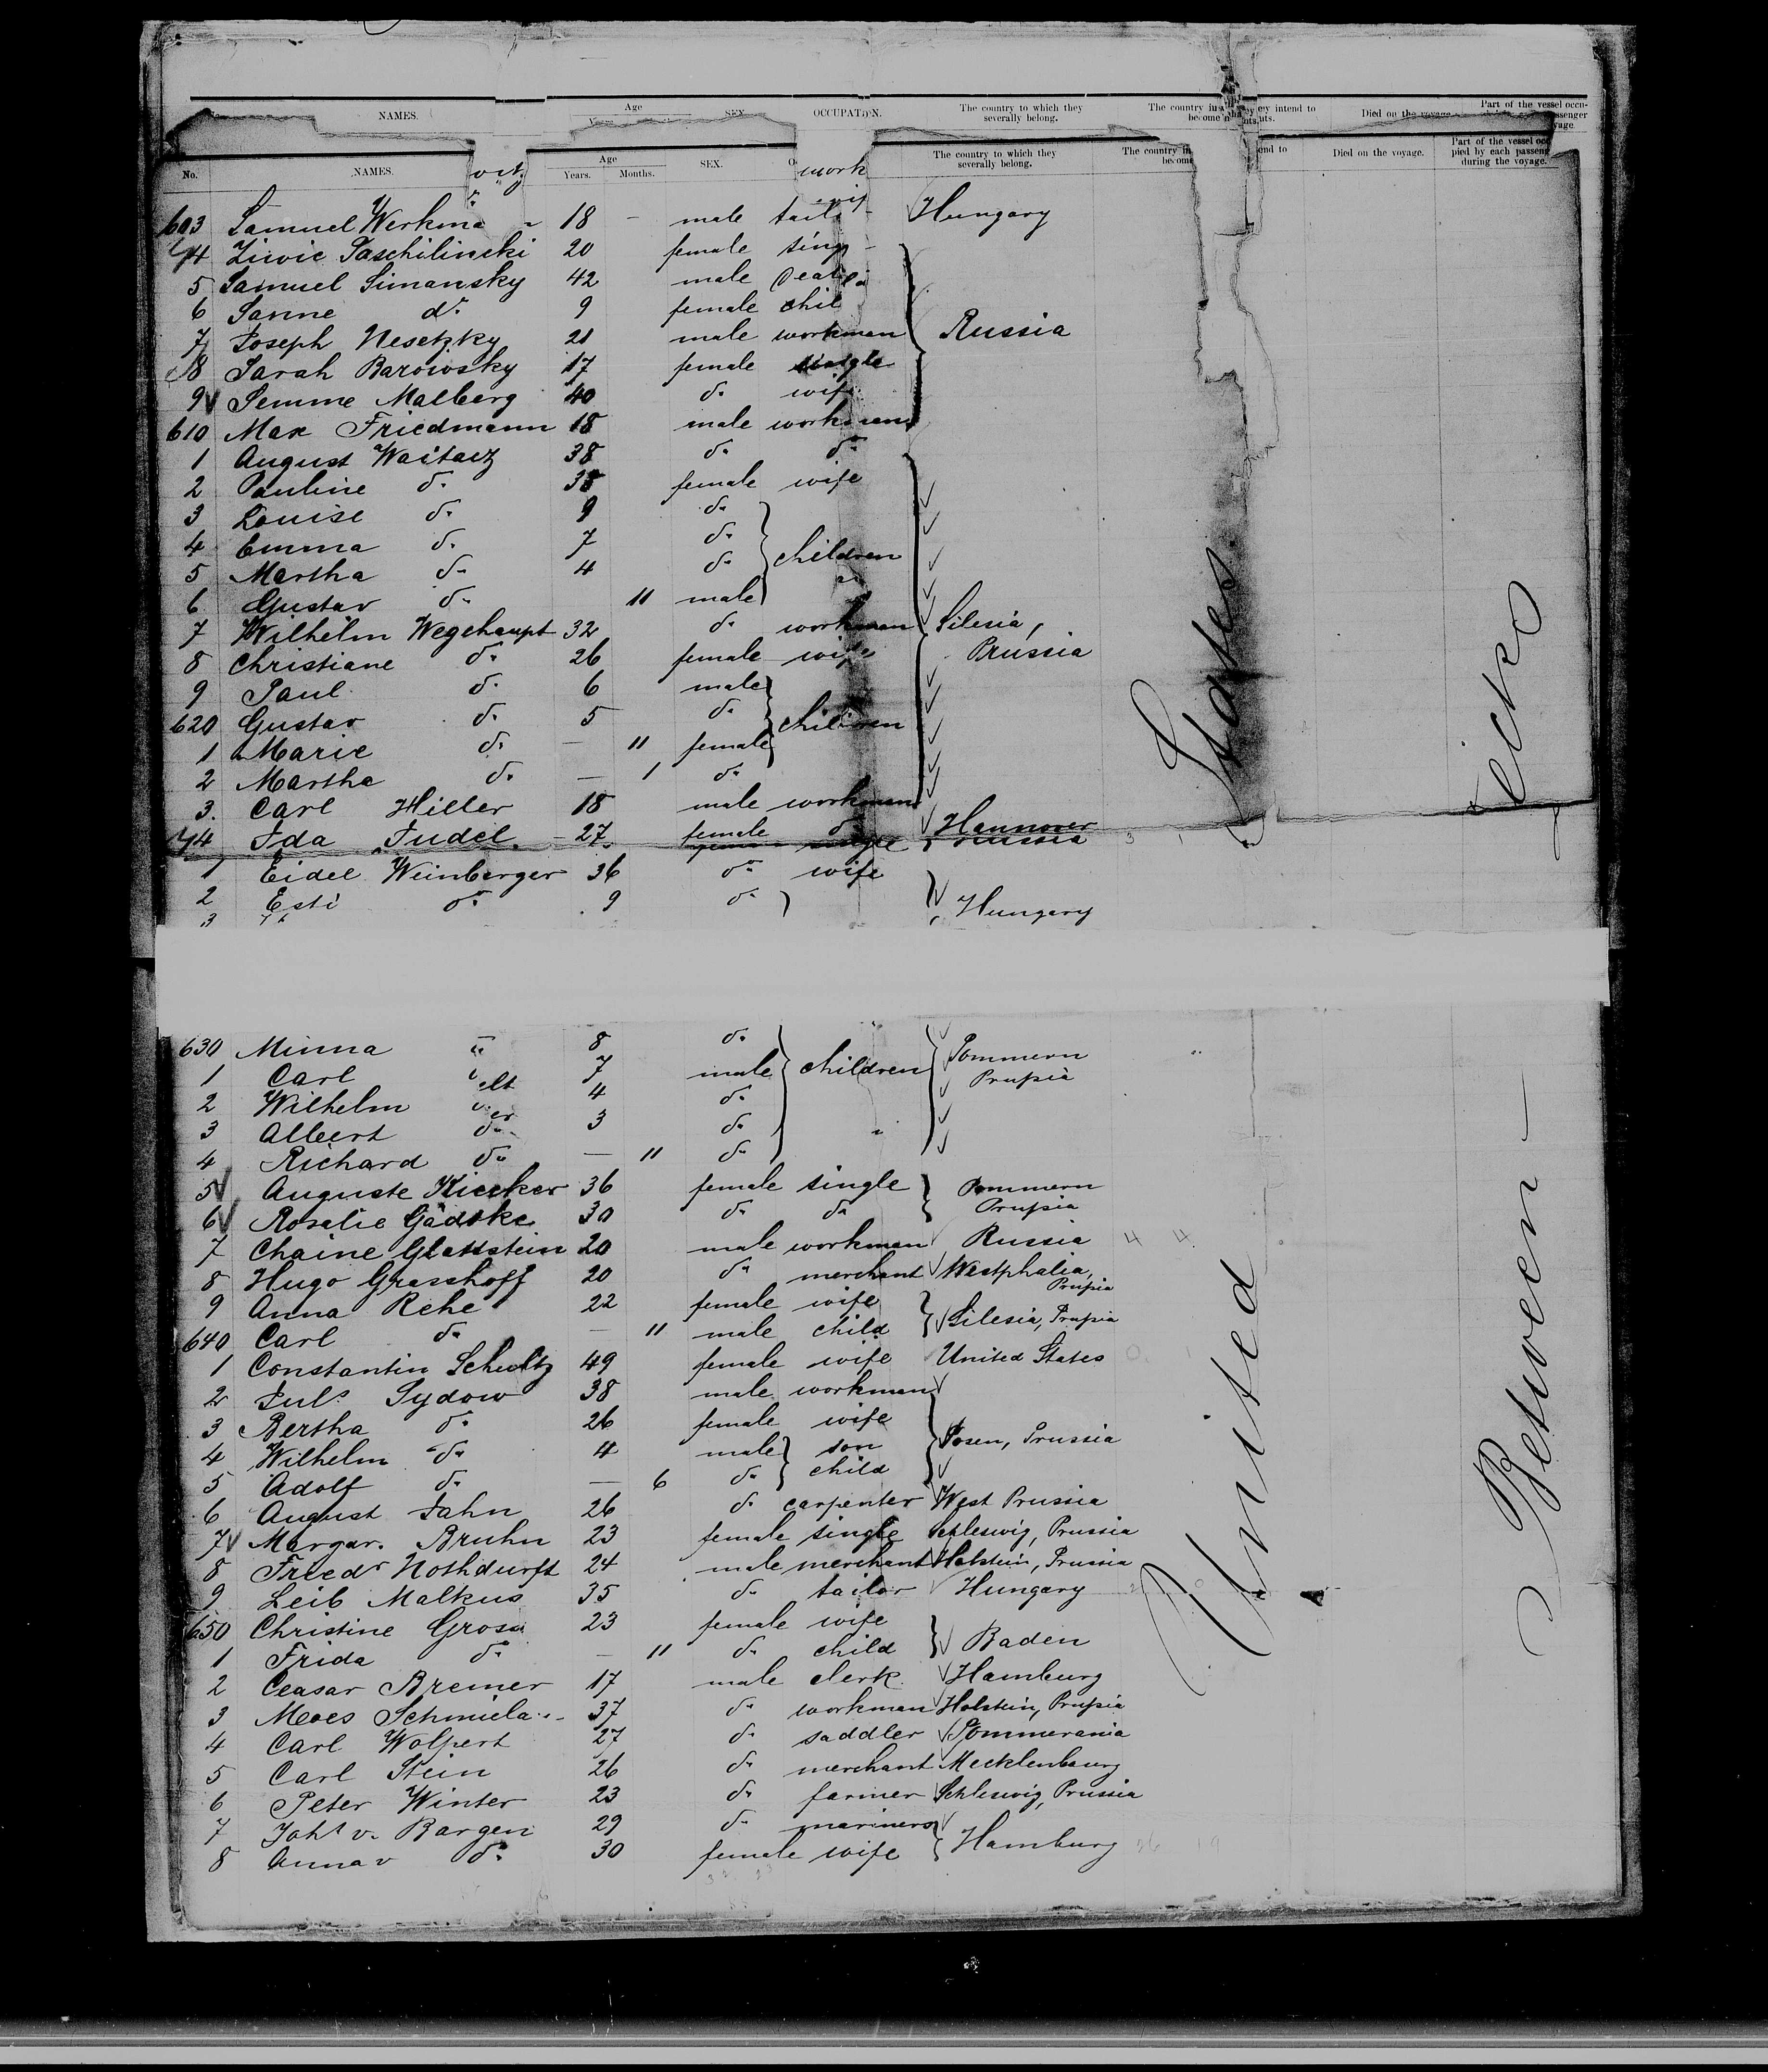 NAMES. Age SEX OCCUPATION. The country to which they severally belong. The country in they intend to become Died on the voyage Part of the vessel occu-
No. NAMES. Age Years. Months. SEX. The country to which they severally belong. The country in end to Died on the voyage. Part of the vessel occ pied by each passeng during the voyage.
work
603 Samuel Werkma 18 - male tail Hungary
4 Ziwie Saschilinski 20 female sing
5 Samuel Simansky 42 male
6 Sanne do 9 female chil
7 Joseph Nesetzky 21 male workman Russia
8 Sarah Barowsky 17 female single
9 Semme Malberg 40 do wife
610 Max Friedmann 18 male workman
1 August Waitacz 38 do do
2 Pauline do 38 female wife
3 Louise do 9 do
4 Emma do 7 do
5 Martha do 4 do children
6 Gustav do 11 male
7 Wilhelm Wegehaupt 32 do workman Silesia,
8 Christiane do 26 female wife Prussia
9 Paul do 6 male
620 Gustav do 5 do children
1 Marie do — 11 female
2 Martha do — 1 do
3. Carl Hiller 18 male workman
4 Ida Judel 27 female do Hannover
single Prussia
1 Eidel Weinberger 36 do wife
2 Esti do 9 do Hungary
3
630 Minna 8 do
1 Carl 7 male children Pommern
Prussia
2 Wilhelm 4 do
3 Albert do 3 do
4 Richard do — 11 do
5 Auguste Kiecker 36 female single Pommern
6 Rosalie Gädtke 30 do do Prussia
7 Chaine Glattstein 20 male workman Russia 4 4
8 Hugo Grasshoff 20 do merchant Westphalia,
Prussia
9 Anna Rehe 22 female wife
640 Carl do — 11 male child Silesia, Prussia
1 Constantin Schultz 49 female wife United States
2 Juls. Sydow 38 male workman
3 Bertha do 26 female wife
4 Wilhelm do 4 male son Posen, Prussia
5 Adolf do — 6 do child
6 August Jahn 26 do carpenter West Prussia
7 Margar. Bruhn 23 female single Schleswig, Prussia
8 Friedr Nothdurft 24 male merchant Holstein, Prussia
9 Leib Malkus 35 do tailor Hungary
650 Christine Gross 23 female wife
1 Frida do — 11 do child Baden
2 Ceasar Bremer 17 male clerk Hamburg
3 Moes Schmiela 37 do workman Holstein, Prussia
4 Carl Wolpert 27 do saddler Pommerania
5 Carl Stein 26 do merchant Mecklenburg
6 Peter Winter 23 do farmer Schleswig, Prussia
7 Joh. v. Bargen 29 do mariners
8 Anna v do 30 female wife Hamburg
United States
Between — Decks